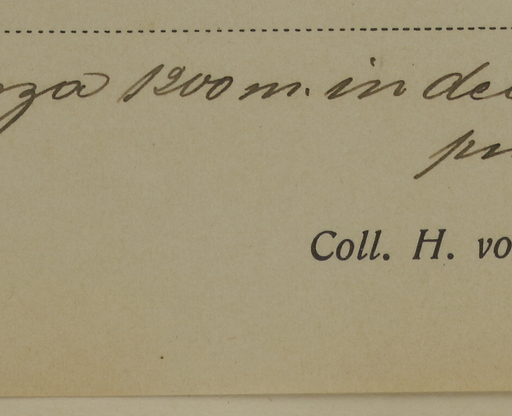 nza 1200 m. in de
pr
Coll. H. vo